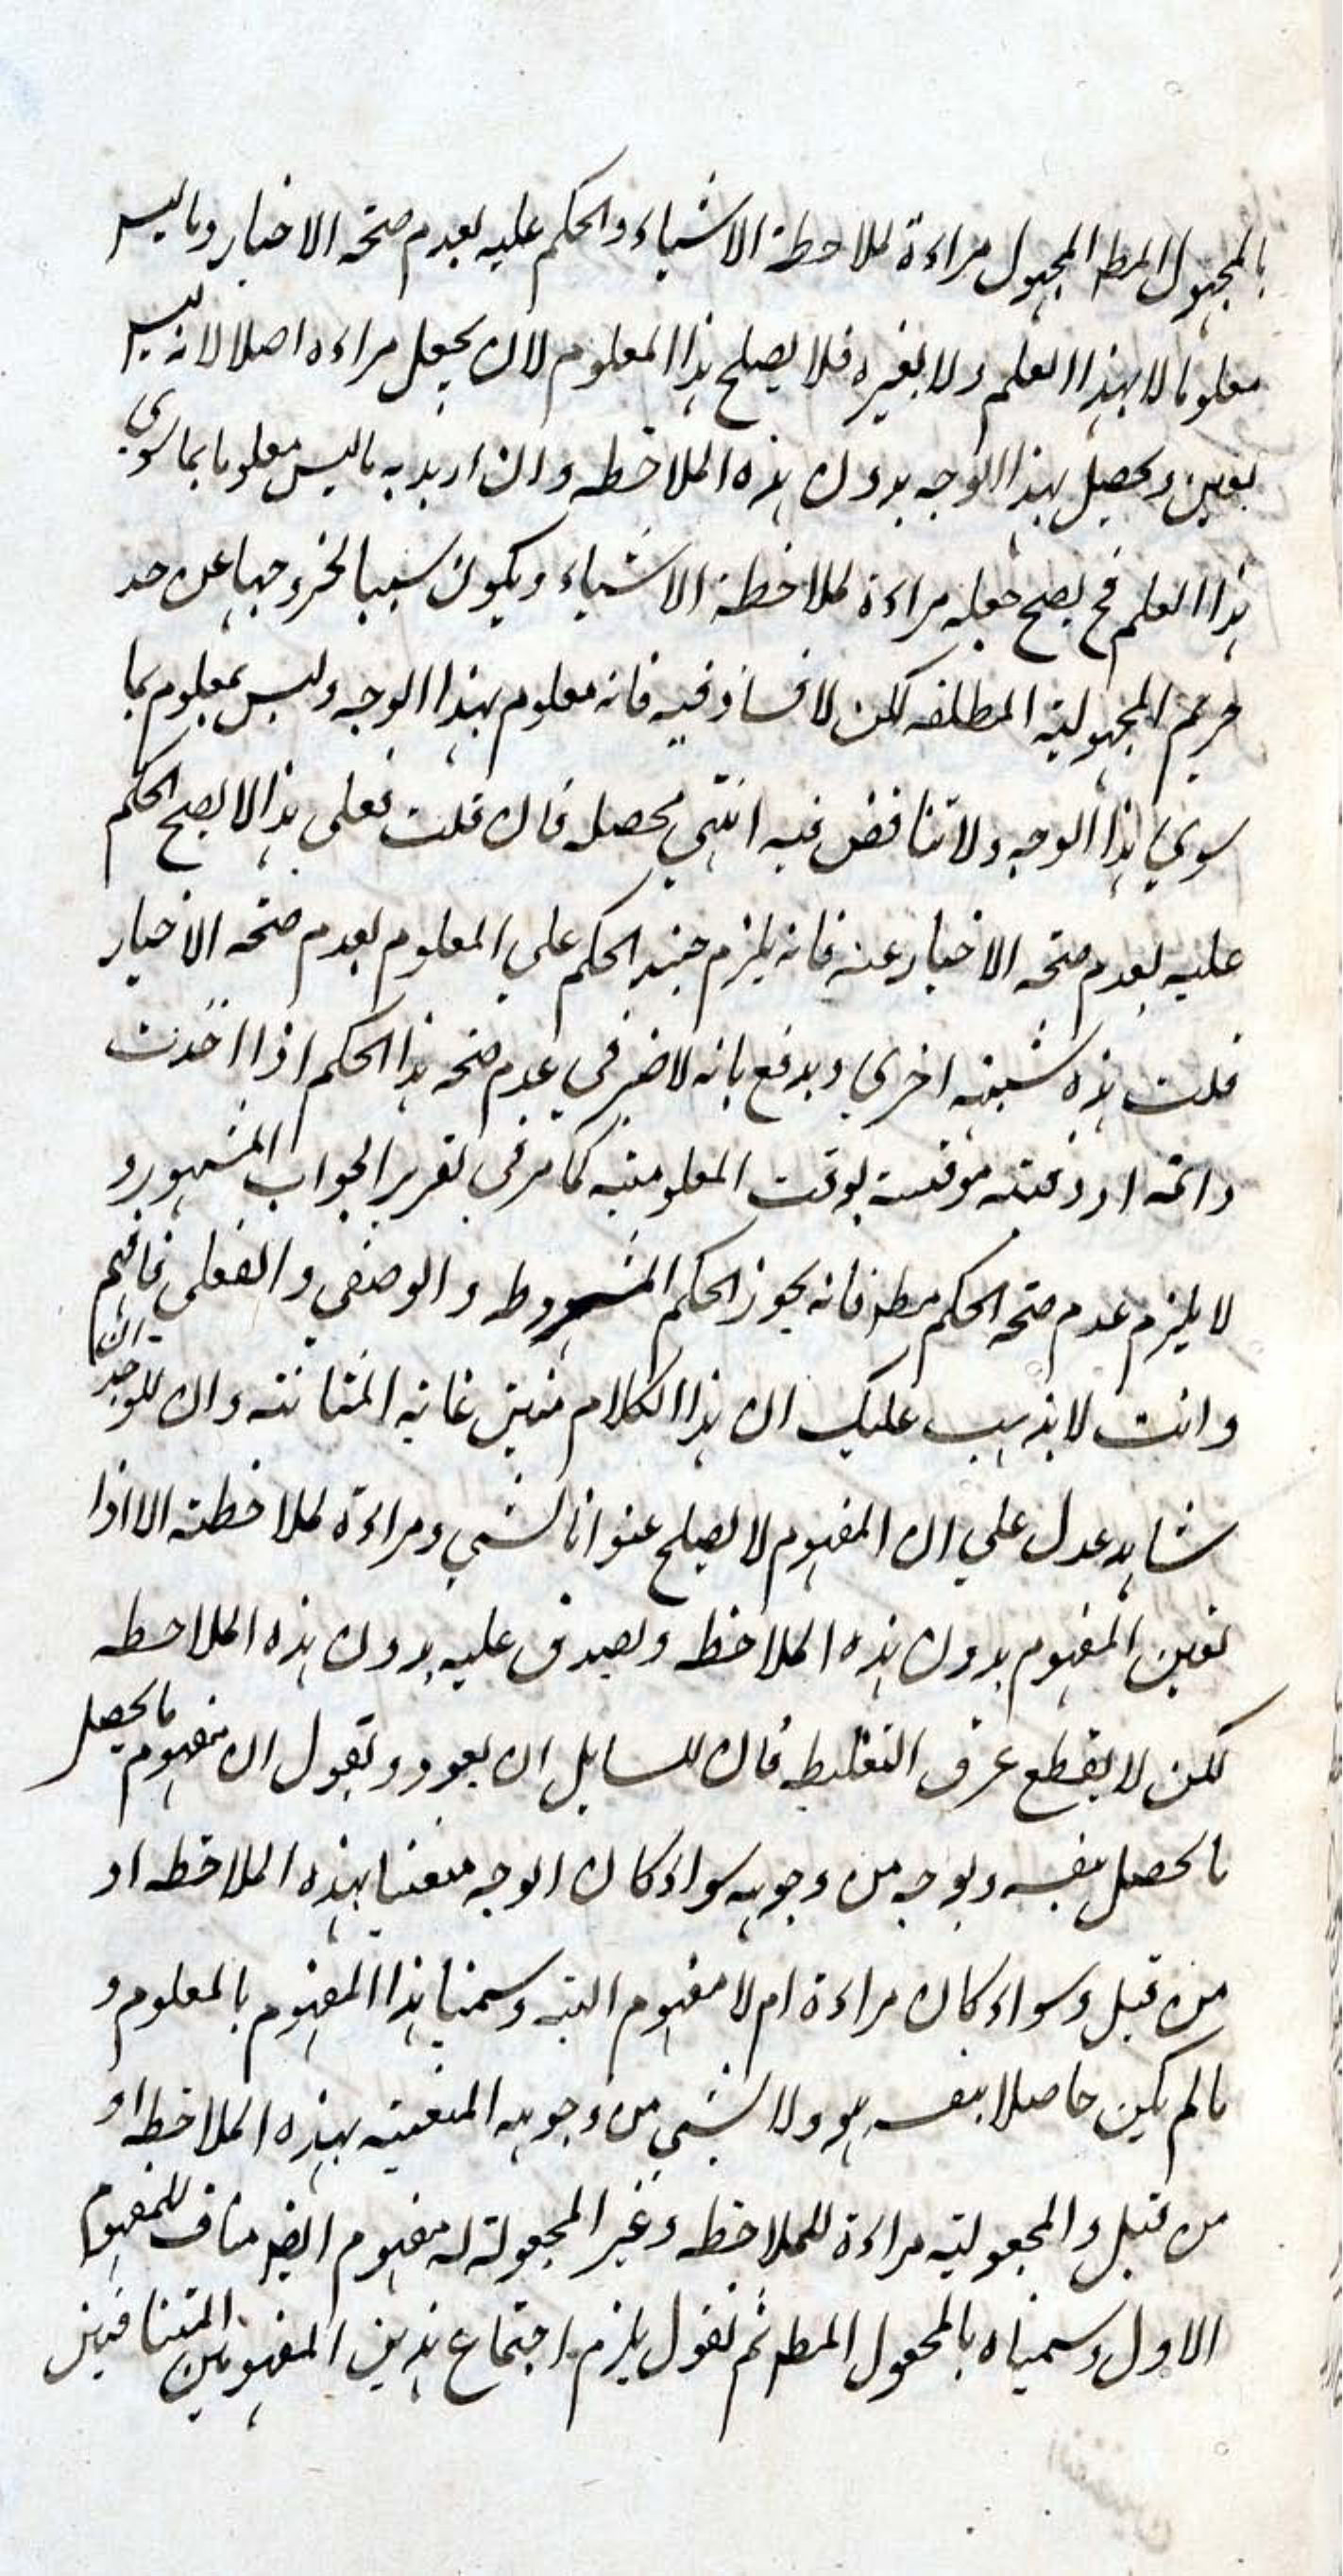 بالمجهول المط المجهول مراءة لملاحظة الاشياء والحكم عليه بعدم صحة الاخبار وما ليس
معلوما لا بهذا العلم ولا بغيره فلا يصلح هذا المعلوم لان يجعل مراءه اصلا لانه ليس
تعين وتحصيل بهذا الوجه بدون هذه الملاحظه وان اريد به ما ليس معلوما بما سوى
هذا العلم فح يصح جعله مراءة لملاحظة الاشياء ويكون سببا لخروجها عن حد
حريم المجهولية المطلقه لكن لا فساد فيه فانه معلوم بهذا الوجه وليس بمعلوم بما
سوي هذا الوجه ولا تناقض فيه انتهي محصله فان قلت فعلى هذا لا يصح الحكم
عليه بعدم صحة الاخبار عنه فانه يلزم حينئذ الحكم علي المعلوم بعدم صحه الاخبار
قلت هذه شبهة اخري ويدفع بانه لا ضير في عدم صحه هذا الحكم اذا اخذت
دائمه او وقتيه موقتة بوقت المعلوميه كما مر في تقرير الجواب المشهور و
لا يلزم عدم صحة الحكم مط فانه يجوز الحكم المشروطه والوصفي والفعلي فافهم
وانت لا يذهب عليك ان هذا الكلام متين غاية المتانته وان للوجدان
شاهد عدل علي ان المفهوم لا يصلح عنوانا لشي ومراءة لملاحظته الا اذا
تعين المفهوم بدون هذه الملاحظه ويصدق عليه بدون هذه الملاحظه
لكن لا يقطع عرق التغليط فان للسايل ان يعود ويقول ان مفهوم ما يحصل
ما يحصل بنفسه وبوجه من وجوهه سواء كان الوجه متعينا بهذه الملاحظه او
من قبل وسواء كان مراءة ام لا مفهوم البته وسمينا هذا المفهوم بالمعلوم و
ما لم يكن حاصلا بنفسه هو ولا بشي من وجوهه المتعينه بهذه الملاحظه او
من قبل والمجعولية مراءة للملاحظه وغير المجعولة له مفهوم ايض مناف للمفهوم
الاول وسميناه بالمجهول المط ثم نقول يلزم اجتماع هذين المفهومين المتنافيين